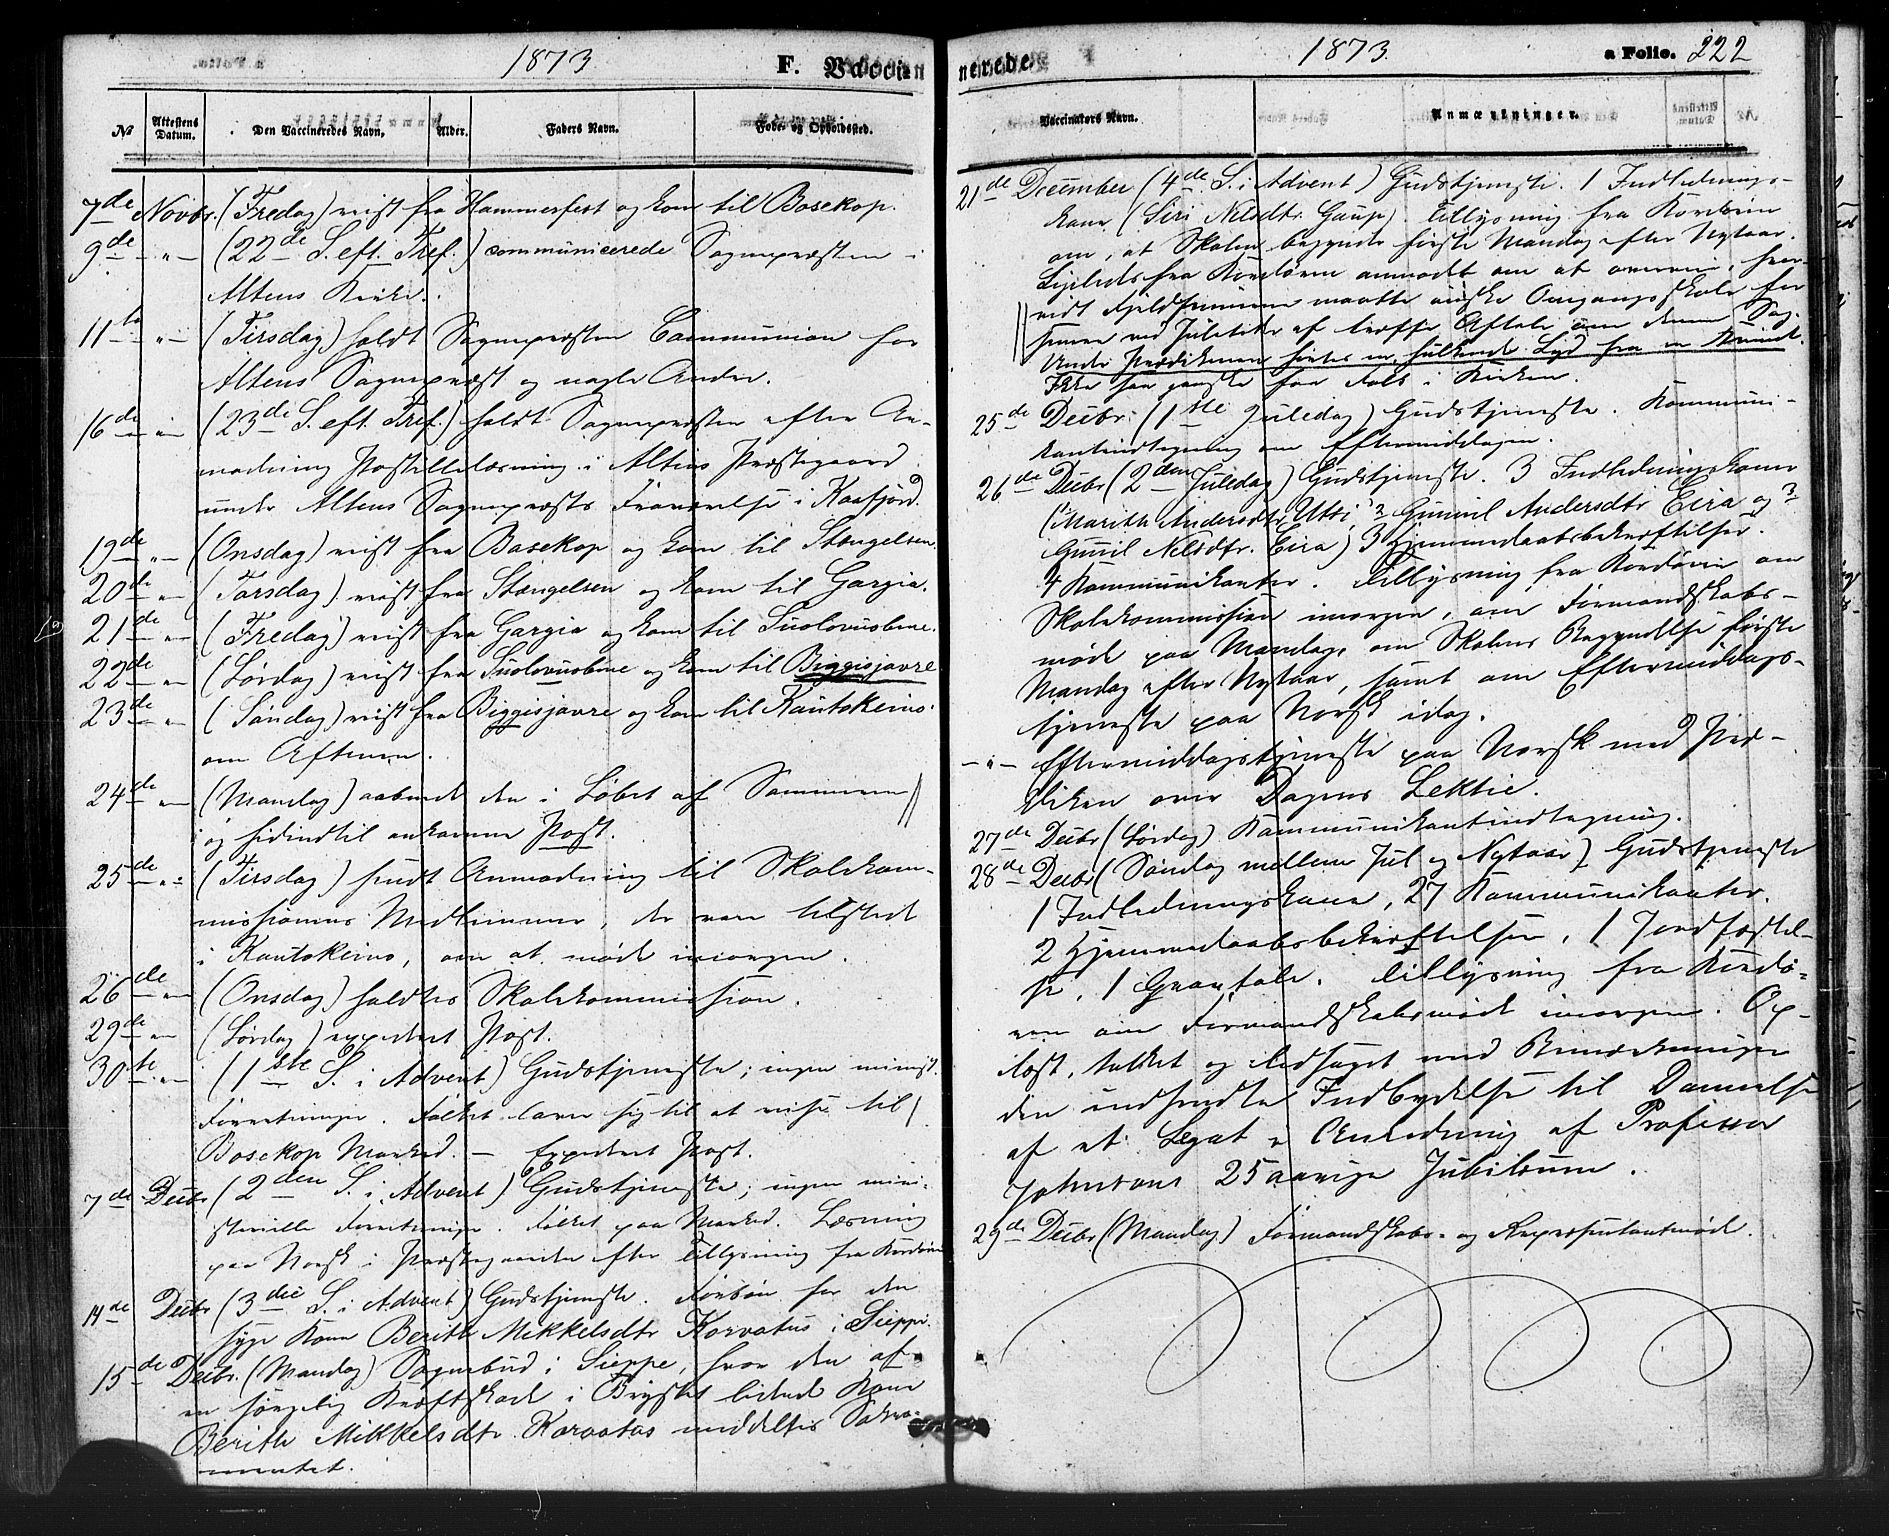 1873
F. Vaccin
№
Attestens Datum.
Den Vaccineredes Navn.
Alder.
Faders Navn.
Føde- og Opholdssted.
7de Novbr. (Fredag) reist fra Hammerfest og kom til Bosekop.
9de " (22de S. eft. Tref.) communicerede Sognepræsten i
Altens Kirke.
11te " (Tirsdag) holdt Sognepræsten Communion for
Altens Sognepræst og nogle Andre.
16de " (23de S. eft. Tref.) holdt Sognepræsten efter An-
modning Postillelæsning i Altens Præstegaard
under Altens Sognepræsts Fraværelse i Kaafjord.
19de " (Onsdag) reist fra Bosekop og kom til Stengelsen.
20de " (Torsdag) reist fra Stengelsen og kom til Gargia.
21de " (Fredag) reist fra Gargia og kom til Suolovuobme.
22de " (Lørdag) reist fra Suolovuobme og kom til Biggisjavre
23de " (Søndag) reist fra Biggisjavre og kom til Kautokeino
om Aftenen.
24de " (Mandag) aabnede den i Løbet af Sommeren
og hidindtil ankomne Post.
25de " (Tirsdag) sendt Anmodning til Skolekom-
missionens Medlemmer, der vare tilstede
i Kautokeino, om at møde imorgen.
26de " (Onsdag) holdtes Skolekommission.
29de " (Lørdag) expederet Post.
30te " (1ste S. i Advent) Gudstjeneste; ingen minist.
Forretninger. Folket laver sig til at reise til
Bosekop Marked. — Expederet Post.
7de Decbr (2den S. i Advent) Gudstjeneste; ingen mini-
sterielle Forretninger. Folket paa Marked. Læsning
paa Norsk i Præstegaarden efter Tillysning fra Kordøren
14de Decbr (3die S. i Advent) Gudstjeneste. Forbøn for den
syge Kone Berith Mikkelsdtr Korvatus i Sieppe.
15de Decbr. (Mandag) Sognebud i Sieppe, hvor den af
en sørgelig Kræftskade i Brystet lidende Kone
Berith Mikkelsdtr Korvatus meddeltes Sakra-
mentet.
nerede.
1873.
a Folio. 222
Vaccinators Navn.
Anmærkninger.
21de December (4de S. i Advent) Gudstjeneste. 1 Indlednings-
kone (Siri Nilsdtr. Gaup). Tillysning fra Kordøren
om, at Skolen begynder første Mandag efter Nytaar.
Ligeledes fra Kordøren anmodet om at overveie, hvor-
vidt Fjeldfinnerne maatte ønske Omgangsskole for
senere ved Juletider at træffe Aftale om denne Sag.
Under Prædikenen hørtes en hulkende Lyd fra en Kvinde.
Ikke saa ganske faa Folk i Kirken.
25de Decbr. (1ste Juledag) Gudstjeneste. Kommuni-
kantindtegning om Eftermiddagen.
26de Decbr (2den Juledag) Gudstjeneste. 3 Indledningskoner
(Marith Andersdtr Utsi, 2 Gunnil Andersdtr Eira og 3
Gunil Nilsdtr. Eira) 3 Hjemmedaabsbekræftelser.
4 Kommunikanter. Tillysning fra Kordøren om
Skolekommission imorgen, om Formandskabs-
møde paa Mandag, om Skolens Begyndelse første
Mandag efter Nytaar, samt om Eftermiddags-
tjeneste paa Norsk idag.
— " — Eftermiddagstjeneste paa Norsk med Præ-
diken over Dagens Lektie.
27de Decbr (Lørdag) Kommunikantindtegning.
28de Decbr (Søndag mellem Jul og Nytaar) Gudstjeneste
1 Indledningskone, 27 Kommunikanter.
2 Hjemmedaabsbekræftelser, 1 Jordfæstel-
se, 1 Gravtale. Tillysning fra Kordø-
ren om Formandskabsmøde imorgen. Op-
læst, tolket og ledsaget med Bemærkninger
den indsendte Indbydelse til Dannelse
af et Legat i Anledning af Professor
Johnsons 25aarige Jubilæum.
29de Decbr. (Mandag) Formandskabs- og Repræsentantmøde.